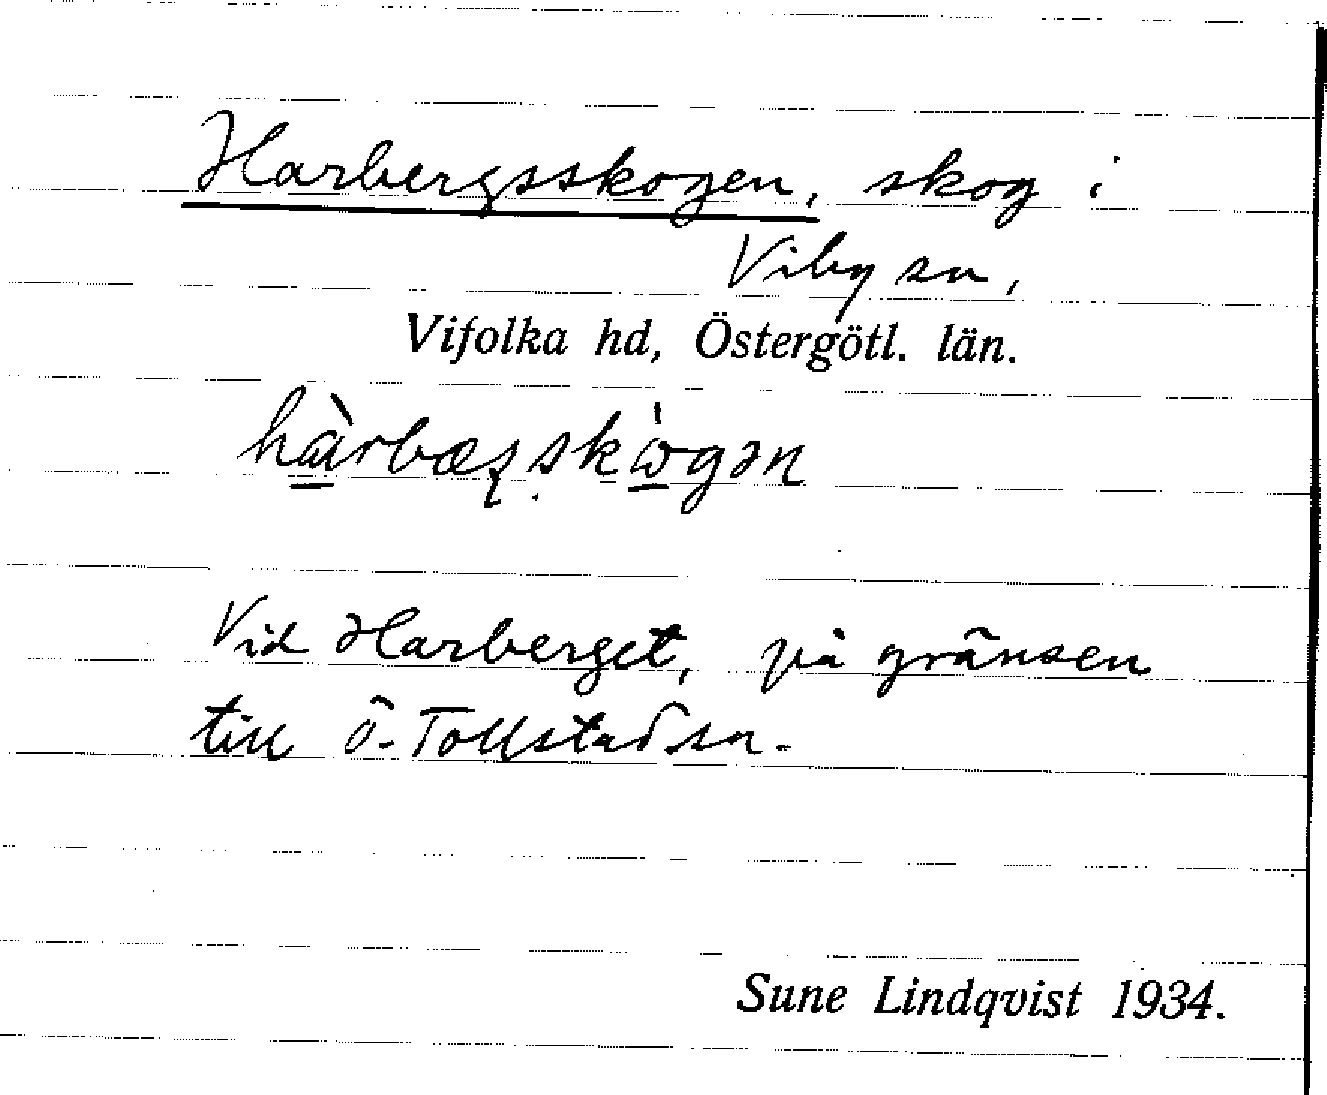 Harbergsskogen, skog i
Viby sn,
Vifolka hd, Östergötl. län.
Vid Harberget, på gränsen
till Ö. Tollstad sn.
Sune Lindqvist 1934.